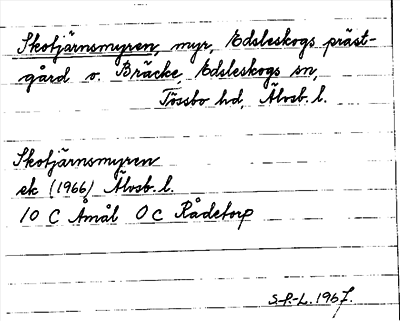 Skotjärnsmyren, myr, Edsleskogs präst-
gård o. Bräcke, Edsleskogs sn,
Tössbo hd, Älvsb. l.
Skotjärnsmyren
ek (1966) Älvsb. l.
10 C Åmål 0 c Rådetorp
S.P.-L. 1967.